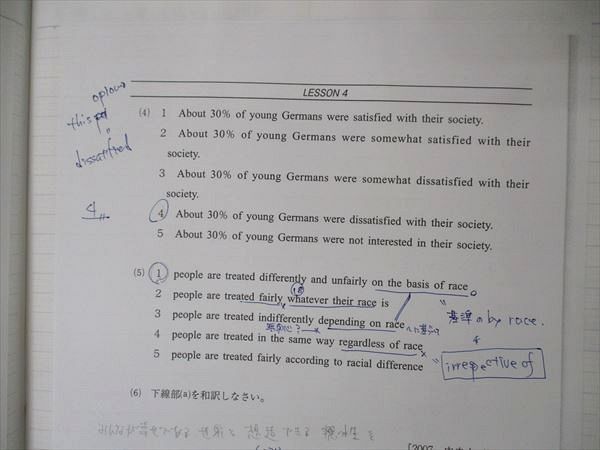 LESSON 4
(4) 1 About 30% of young Germans were satisfied with their society.
2 About 30% of young Germans were somewhat satisfied with their
society.
3 About 30% of young Germans were somewhat dissatisfied with their
society.
4 About 30% of young Germans were dissatisfied with their society.
5 About 30% of young Germans were not interested in their society.
dissatisfied
4
(5) 1 people are treated differently and unfairly on the basis of race
2 people are treated fairly whatever their race is
3 people are treated indifferently depending on race
4 people are treated in the same way regardless of race
5 people are treated fairly according to racial difference
by race.
irrespective of
(6) 下線部(a)を和訳しなさい。